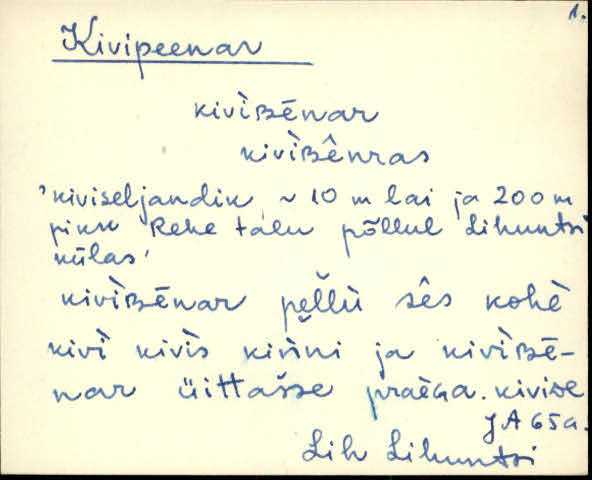 1.
Kivipeenar
kivìʙēnar
kivìʙênras
'kiviseljandik ~ 10 m lai ja 200 m
pikk Rehe talu põllul Lihuntsi
külas'
kivìʙēnar pellù sês kohè
kivì kivìs kinni ja kivìʙē-
nar üittasse praèɢa. kivise
JA 65a.
Lih Lihuntsi